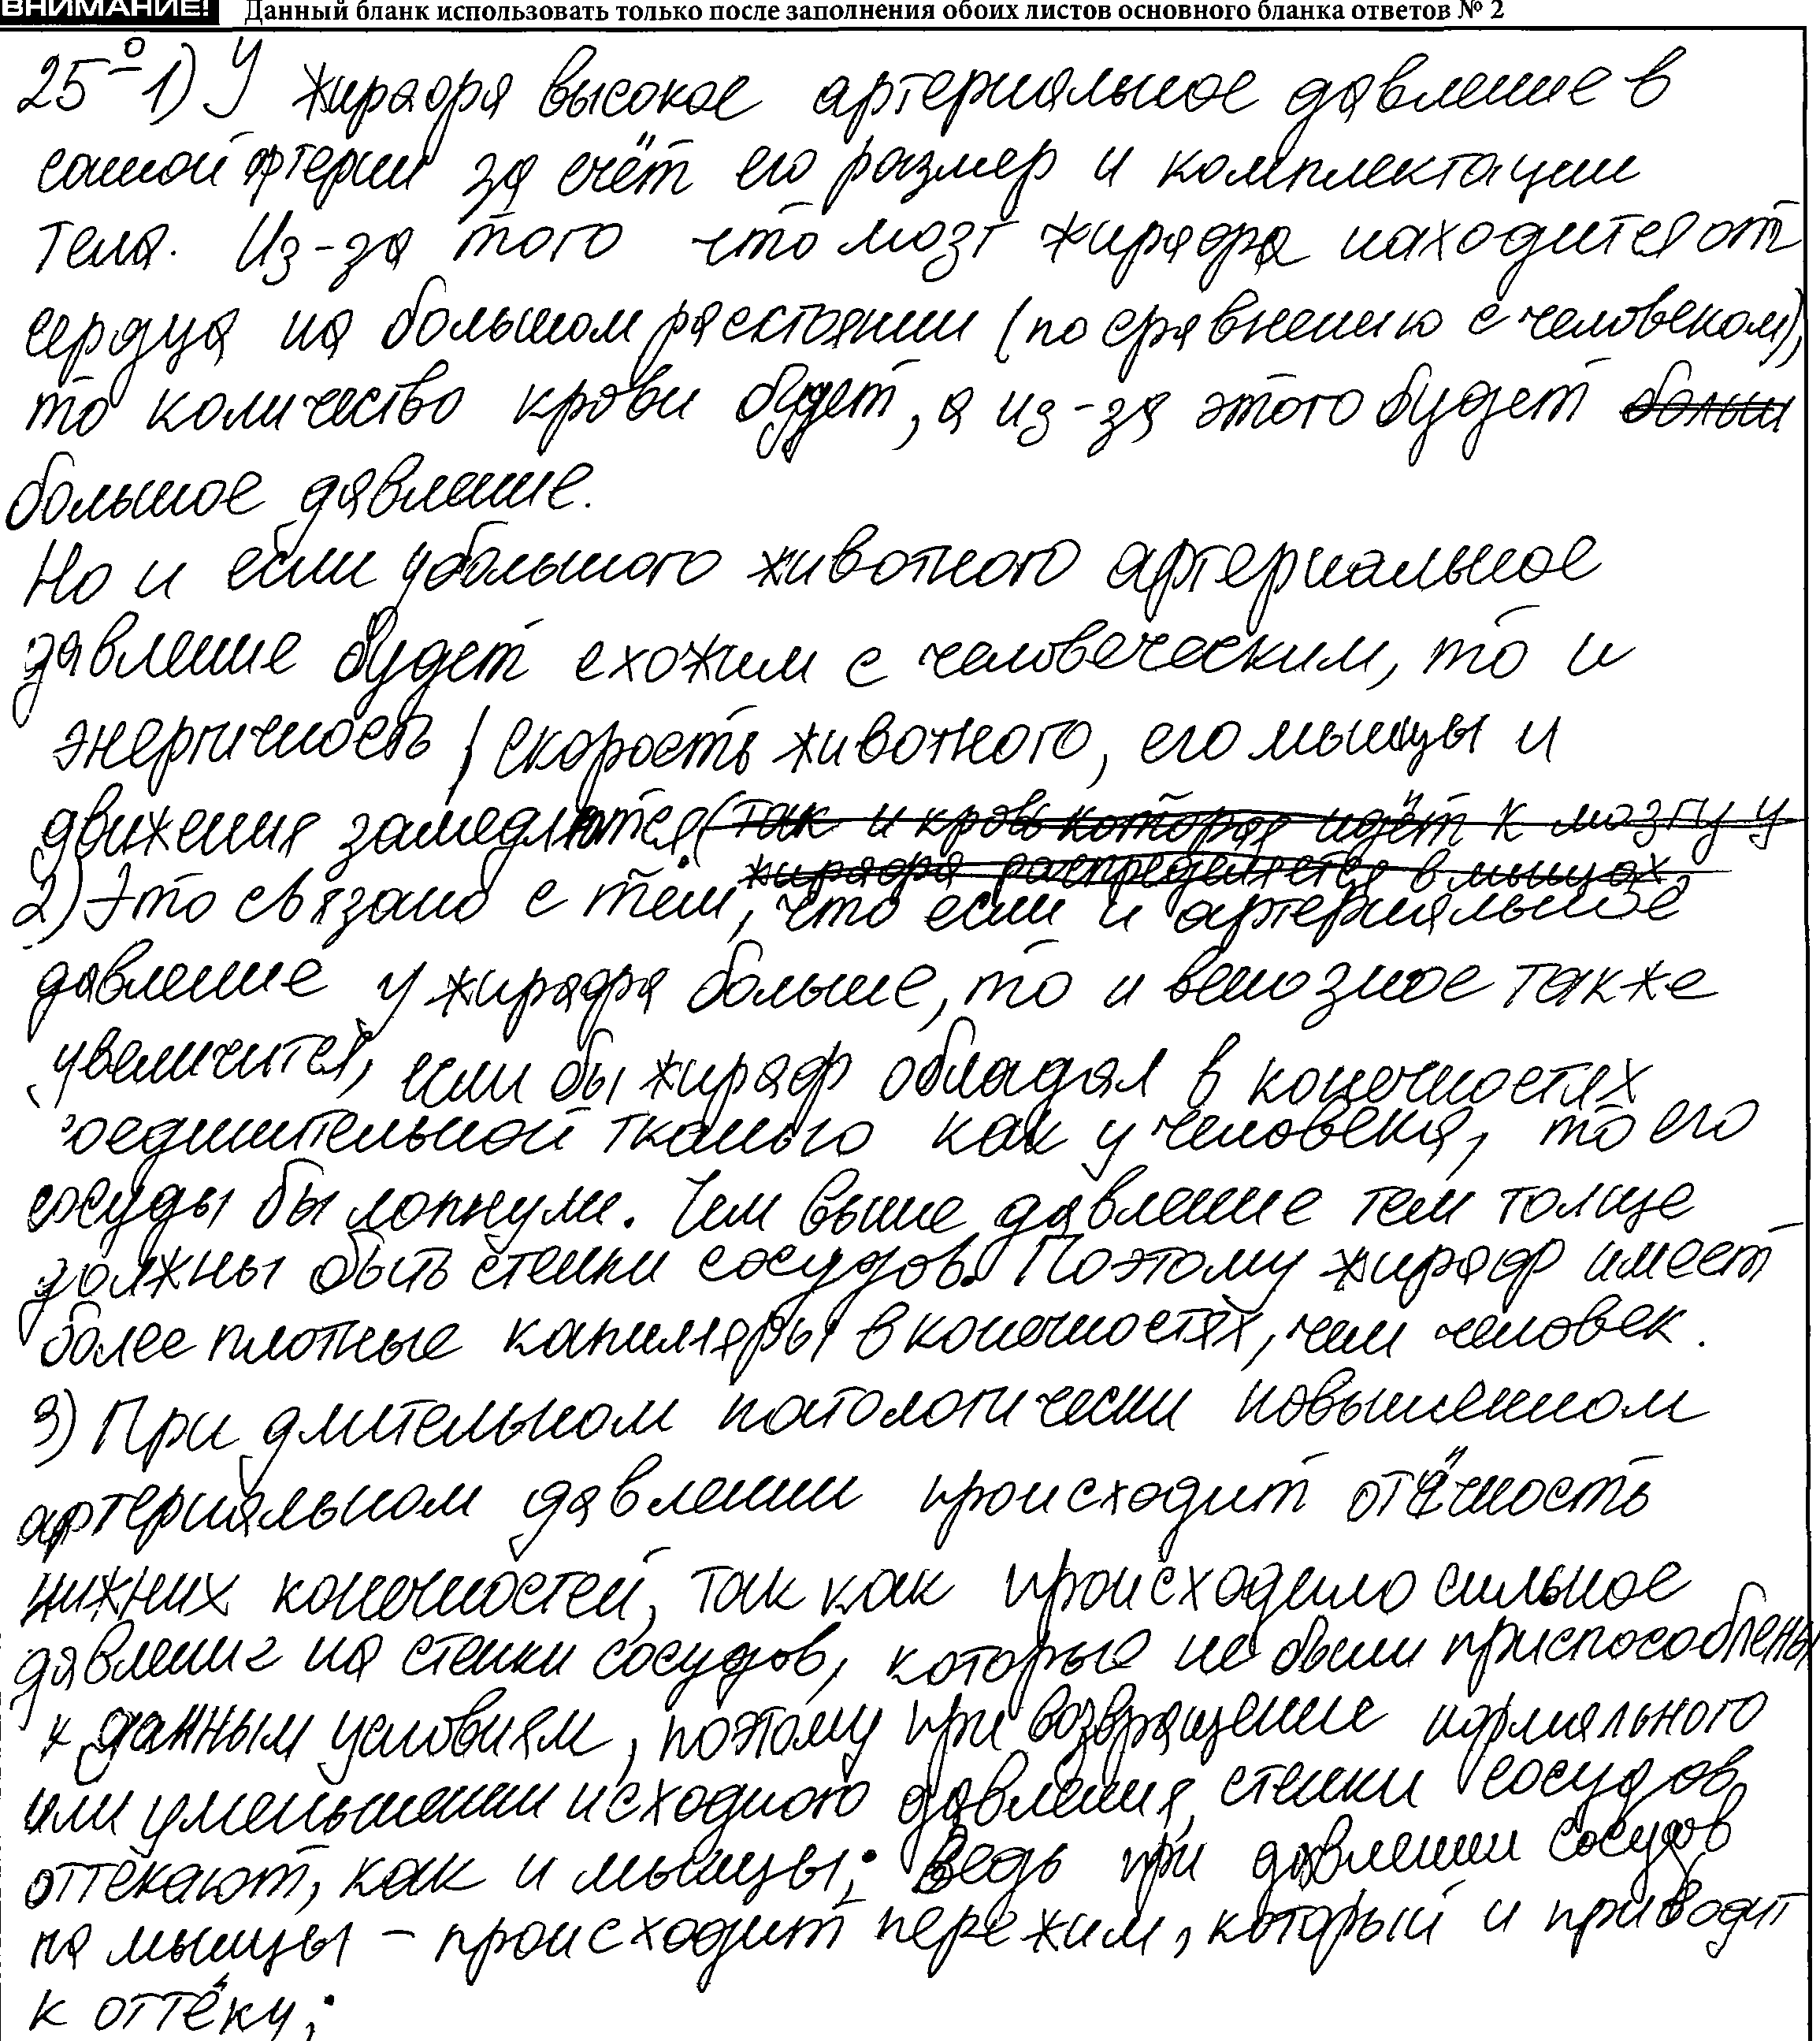 ВНИМАНИЕ! Данный бланк использовать только после заполнения обоих листов основного бланка ответов № 2
25º 1) У жирафа высокое артериальное давление в
сонной артерии за счёт его размер и комплектации
тела. Из-за того что мозг жирафа находится от
сердца на большом расстоянии (по сравнению с человеком),
то количество крови будет, а из-за этого будет больш
большое давление.
Но и если у большого животного артериальное
давление будет схожим с человеческим, то и
энергичность, скорость животного, его мышцы и
движения замедлятся (так и кровь которая идёт к мозгу у
жирафа распределяется в мышцах.
2) Это связано с тем, что если и артериальное
давление у жирафа больше, то и венозное также
увеличится, если бы жираф обладал в конечностях
соединительной тканью как у человека, то его
сосуды бы лопнули. Чем выше давление тем толще
должны быть стенки сосудов. Поэтому жираф имеет
более плотные капиляры в конечностях, чем человек.
3) При длительном патологически повышенном
артериальном давлении происходит отёчность
нижних конечностей, так как происходило сильное
давление на стенки сосудов, которые не были приспособлены
к данным условиям, поэтому при возвращение нормального
или уменьшении исходного давления, стенки сосудов
оттекают, как и мышцы; Ведь при давлении сосудов
на мышцы – происходит пережим, который и приводит
к оттёку;